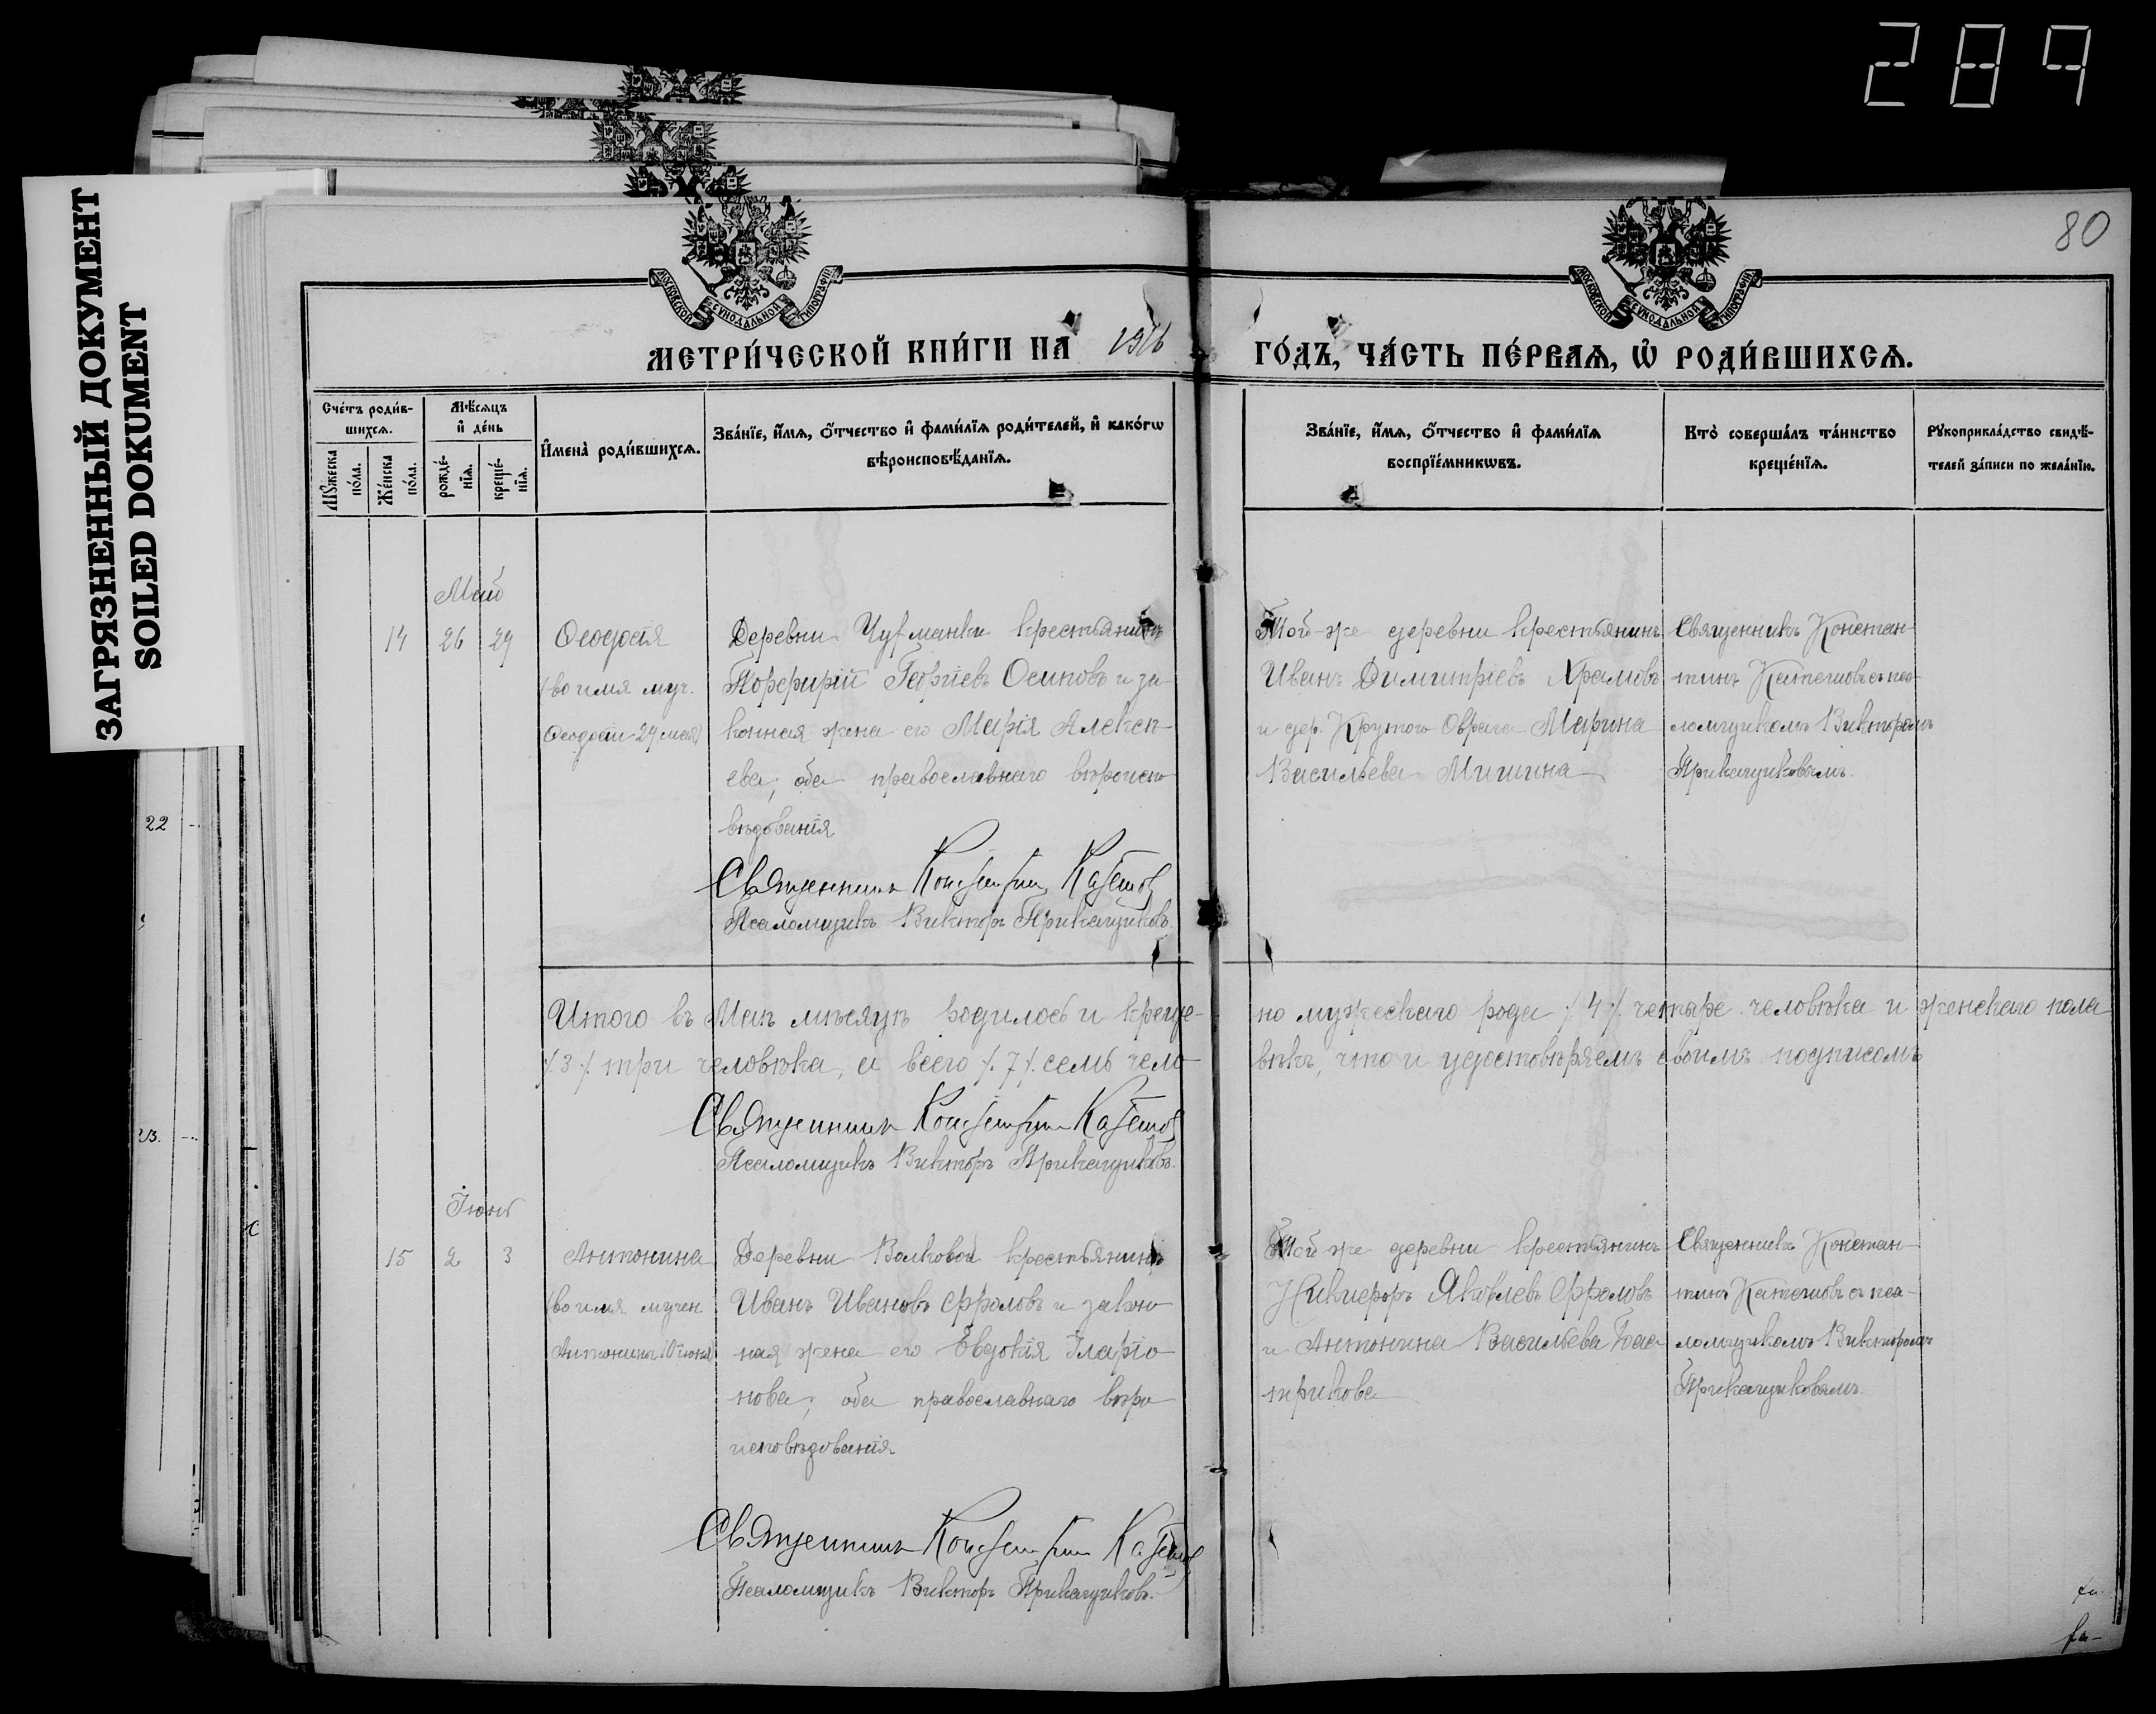 289
ЗАГРЯЗНЕННЫЙ ДОКУМЕНТ
SOILED DOKUMENT
22
23.
80
МОСКОВСКОЙ СѴНОДАЛЬНОЙ ТИПОГРАФІИ
МОСКОВСКОЙ СѴНОДАЛЬНОЙ ТИПОГРАФІИ
МЕТРИ́ЧЕСКОЙ КНИ́ГИ НА 1916 ГО́ДЪ, ЧА́СТЬ ПЕ́РВАѦ, Ѡ҆ РОДИ́ВШИХСѦ.
Сче́тъ роди́в-
шихсѧ.
Мꙋ́жеска
по́ла.
Же́нска
по́ла.
Мѣ́сѧцъ
и҆ де́нь
рожде́-
нїѧ.
креще́-
нїѧ.
И҆мена̀ роди́вшихсѧ.
Зва́нїе, и҆́мѧ, ѻ҆́тчество и҆ фами́лїѧ роди́телей, и҆ како́гѡ
вѣроисповѣ́данїѧ.
Зва́нїе, и҆́мѧ, ѻ҆́тчество и҆ фами́лїѧ
воспрїе́мникѡвъ.
Кто̀ соверша́лъ та́инство
креще́нїѧ.
Рꙋкоприкла́дство свидѣ́-
телей за́писи по жела́нїю.
Май
14 26 29
Ѳеодосія
(во имя муч.
Ѳеодосіи 29 мая)
Деревни Чуфманки крестьянинъ
Порфирій Георгіевъ Осиповъ и за-
конная жена его Марія Алексѣ-
ева; оба православнаго вѣроиспо-
вѣдованія
Священникъ Константинъ Катетовъ
Псаломщикъ Викторъ Прикащиковъ.
Той-же деревни крестьянинъ
Иванъ Димитріевъ Храмовъ
и дер. Крутого Оврага Марина
Васильева Мишина
Священникъ Констан-
тинъ Катетовъ съ пса-
ломщикомъ Викторомъ
Прикащиковымъ.
Итого въ Маѣ мѣсяцѣ родилось и креще- но мужескаго рода /4/ четыре человѣка и женскаго пола
/3/ три человѣка, а всего /7/ семь чело- вѣкъ, что и удостовѣряемъ своимъ подписомъ
Священникъ Константинъ Катетовъ
Псаломщикъ Викторъ Прикащиковъ.
Іюнь
15 2 3
Антонина
(во имя мучен.
Антонины 10 іюня)
Деревни Волковой крестьянинъ
Иванъ Ивановъ Фроловъ и закон-
ная жена его Евдокія Иларіо-
нова; оба православнаго вѣро-
исповѣдованія
Священникъ Константинъ Катетовъ
Псаломщикъ Викторъ Прикащиковъ.
Той-же деревни крестьянинъ
Никифоръ Яковлевъ Фроловъ
и Антонина Васильева
Священникъ Констан-
тинъ Катетовъ съ пса-
ломщикомъ Викторомъ
Прикащиковымъ.